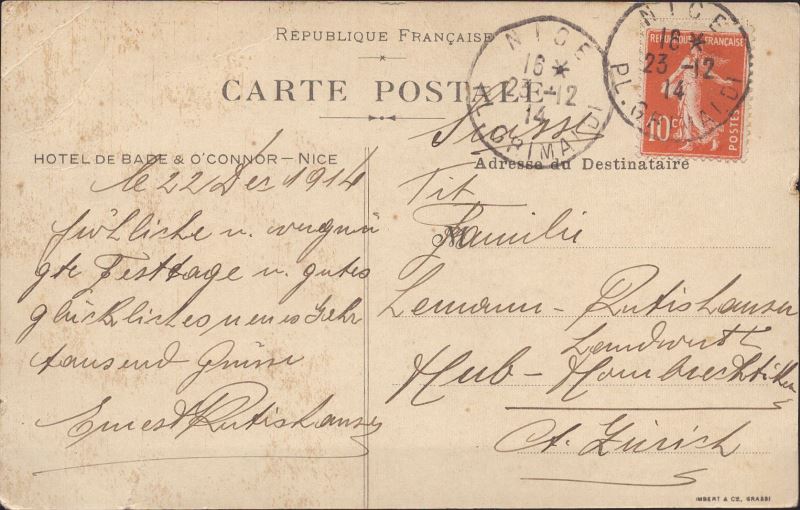 RÉPUBLIQUE FRANÇAISE
CARTE POSTALE
NICE
16 *
23 - 12
14
PL. GRIMALDI
NICE
16 *
23 - 12
14
PL. GRIMALDI
RÉPUBLIQUE FRANÇAISE
10 c.
POSTES
HOTEL DE BADE & O'CONNOR – NICE
le 22 Dec 1914
fröhliche u. vergnü
gte Festtage u. gutes
glückliches neues Jahr
tausend Grüsse
Ernest Rutishauser
Suisse
Adresse du Destinataire
Tit
Familie
Lemann – Rutishauser
Landwirt
Hub – Hombrechtikon
Ct. Zürich
IMBERT & CE, GRASSE